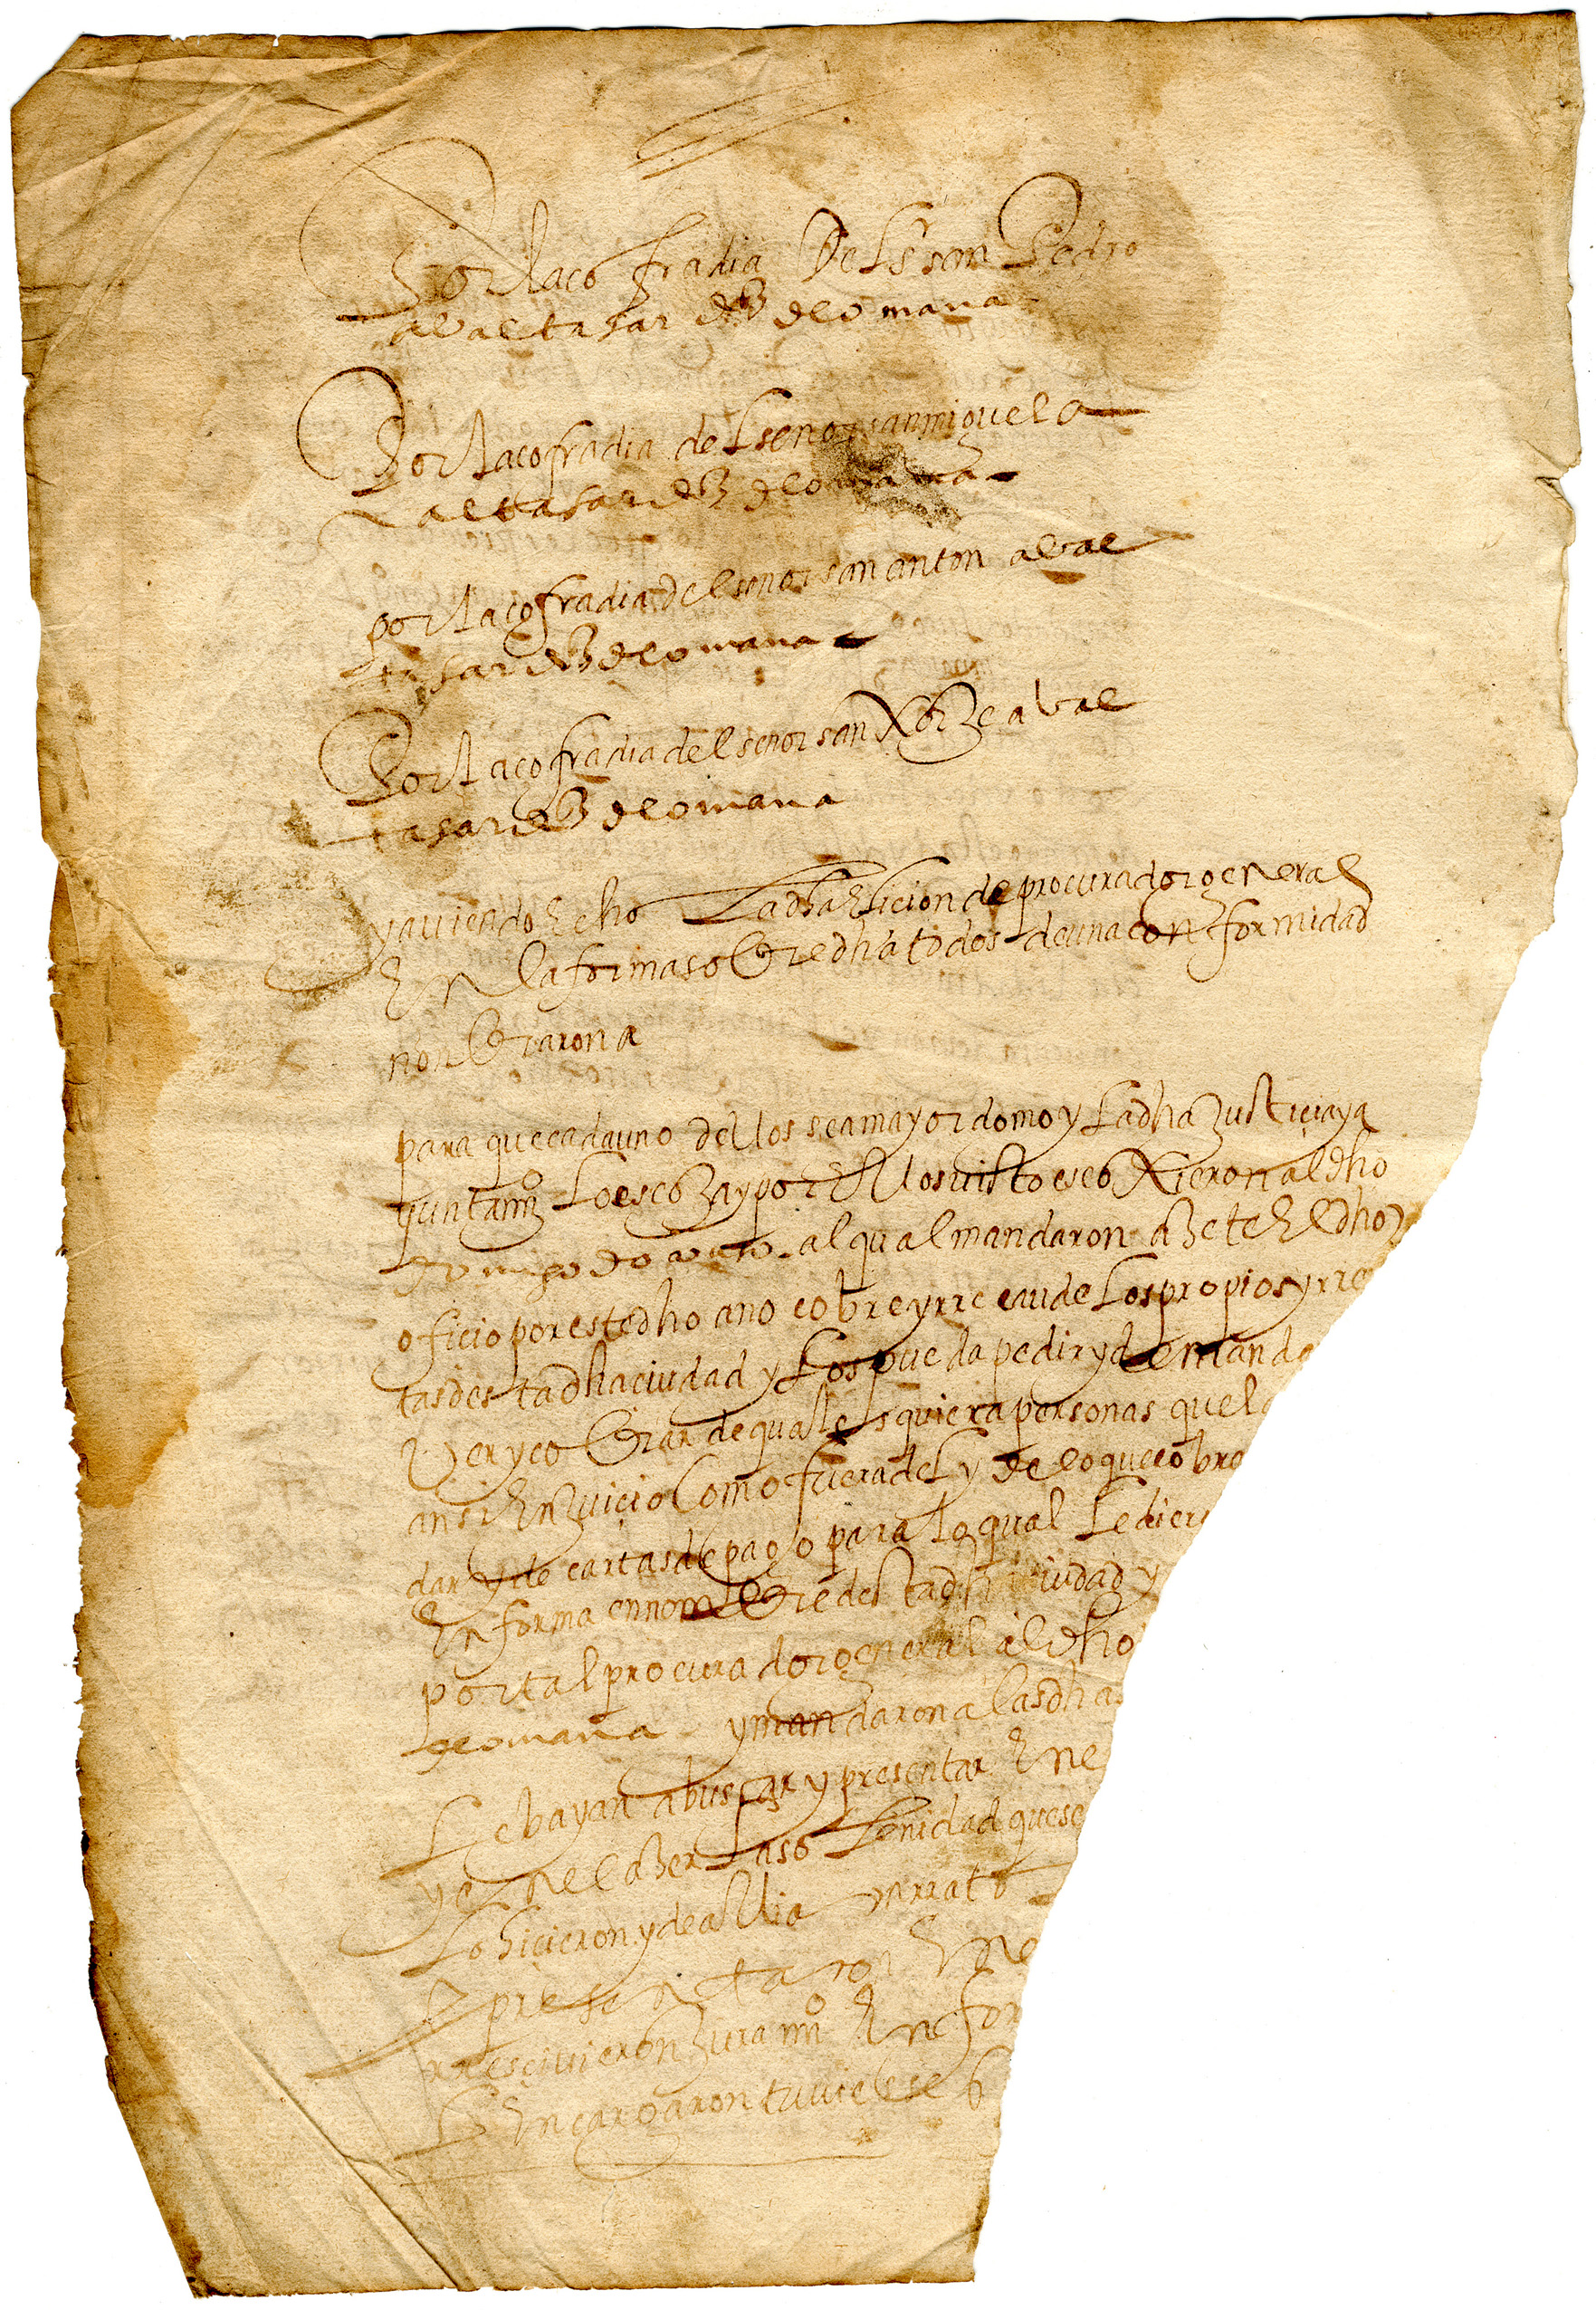 Por la cofradia Del Sr san Pedro
a valtasar dez de omana
Por la cofradia del senor san miguel a
valtasar dez de omana
por la cofradia del senor san anton a val
tasar dez de omana
Por la cofradia del senor san Xorze a val
tasar dez de omana
y aviendo Echo La dha Elicion de procurador general
En la forma sobre dha todos de una conformidad
nonbraron a
para que cada uno dellos sea mayordomo y La dha Justicia y a
yuntamio Lo escoza y por Ellos visto escoxieron al dho
al qual mandaron azete El dho
oficio por este dho ano cobre y rrecaude Los propios y rre
tas desta dha ciudad y Los pueda pedir y demanda
ver y cobrar de quales quiera personas que l
ansi En Juicio Como fuera del y de lo que cobr
dar y de cartas de pago para lo qual Le dier
En forma en nombre desta dha ciudad y
por tal procurador general al dho
de omana y mandaron a las dhas
Le bayan a buscar y presentar En e
y en el azer La solenidad que se
Lo hicieron y de alli a un rrato
presentaron En e
rrescivieron Juramio En for
L Encargaron tuviese b